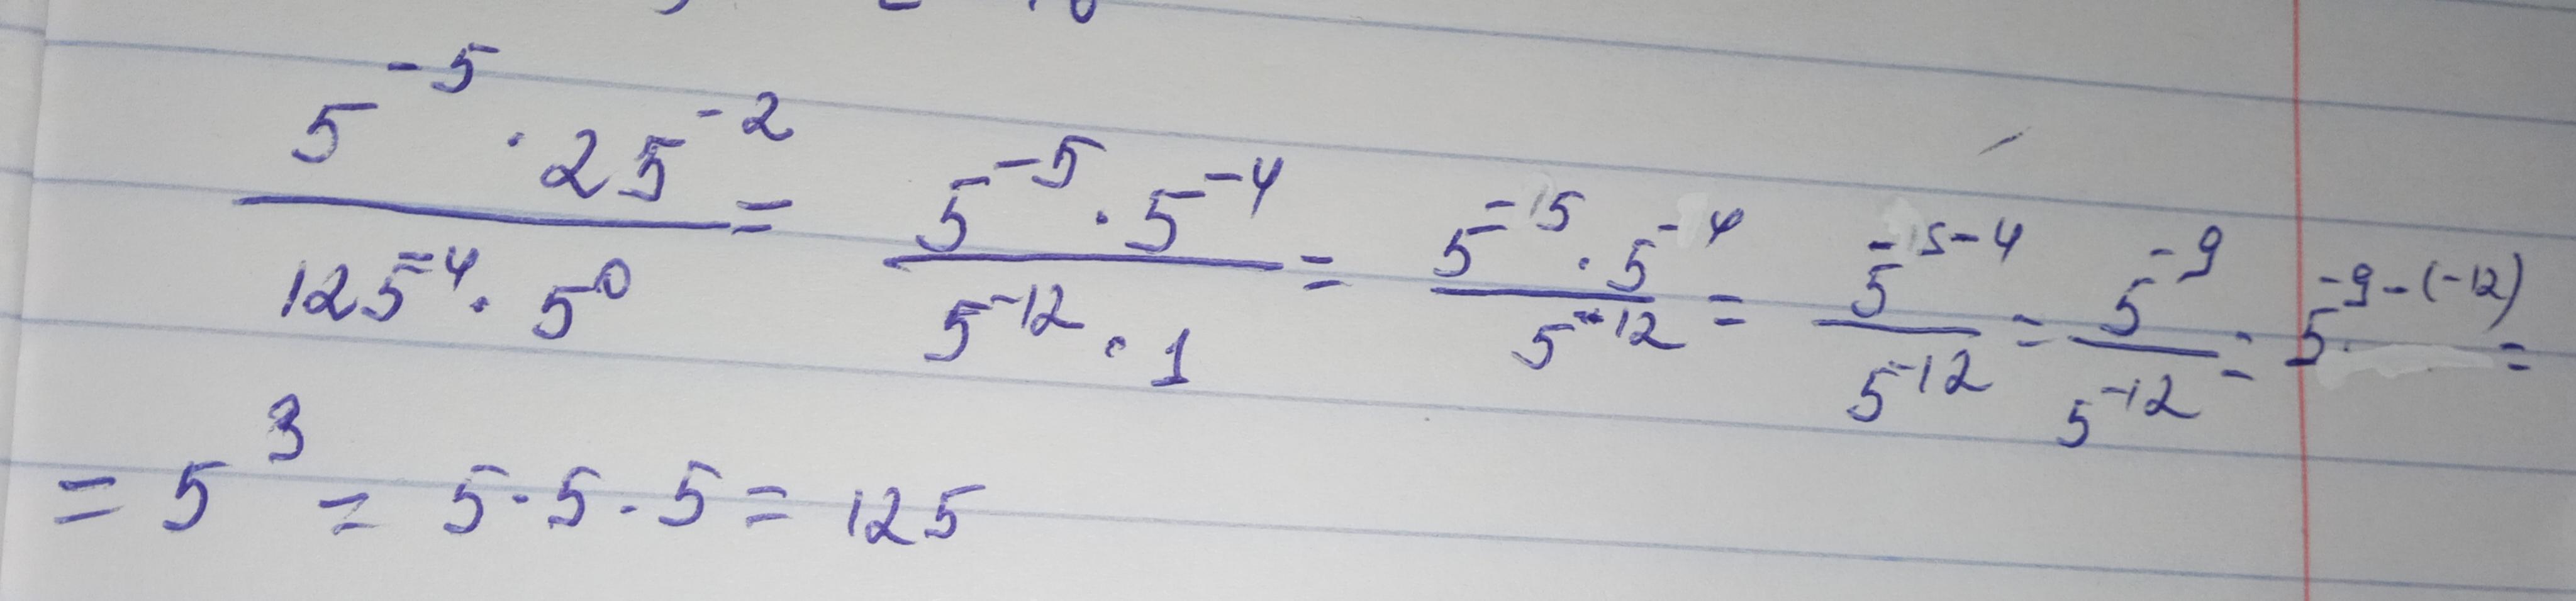 5⁻⁵ · 25⁻² / 125⁻⁴ · 5⁰ = 5⁻⁵ · 5⁻⁴ / 5⁻¹² · 1 = 5⁻⁵ · 5⁻⁴ / 5⁻¹² = 5⁻⁵⁻⁴ / 5⁻¹² = 5⁻⁹ / 5⁻¹² = 5⁻⁹⁻⁽⁻¹²⁾ =
= 5³ = 5 · 5 · 5 = 125